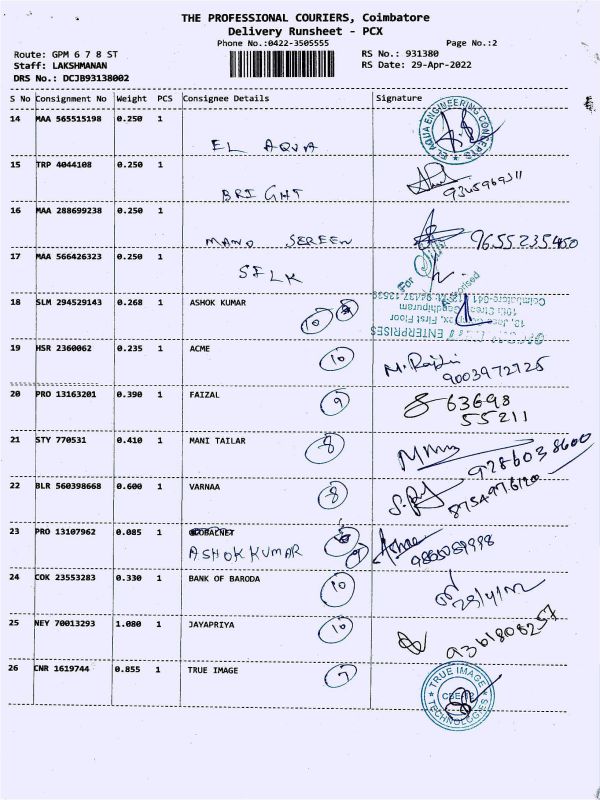 THE PROFESSIONAL COURIERS, Coimbatore
Delivery Runsheet - PCX
Phone No.:0422-3505555 Page No.:2
Route: GPM 6 7 8 ST RS No.: 931380
Staff: LAKSHMANAN RS Date: 29-Apr-2022
DRS No.: DCJB93138002
S No Consignment No Weight PCS Consignee Details Signature
14 MAA 565515198 0.250 1 EL AQUA
EL AQUA ENGINEERING CONCEPTS
15 TRP 4044108 0.250 1 BRIGHT
16 MAA 288699238 0.250 1 MANO SEREEN 9655235450
17 MAA 566426323 0.250 1 SELK
For
Authorised
18 SLM 294529143 0.268 1 ASHOK KUMAR 10
10th Street, Gandhipuram
First Floor
ENTERPRISES
19 HSR 2360062 0.235 1 ACME 10 9003972725
20 PRO 13163201 0.390 1 FAIZAL 9 63698
55211
21 STY 770531 0.410 1 MANI TAILAR 8 9286038600
22 BLR 560398668 0.600 1 VARNAA 8
23 PRO 13107962 0.085 1 ASHOKKUMAR 9
24 COK 23553283 0.330 1 BANK OF BARODA 10
25 NEY 70013293 1.080 1 JAYAPRIYA 10 9361808257
26 CNR 1619744 0.855 1 TRUE IMAGE 7
TRUE IMAGE TECHNOLOGIES